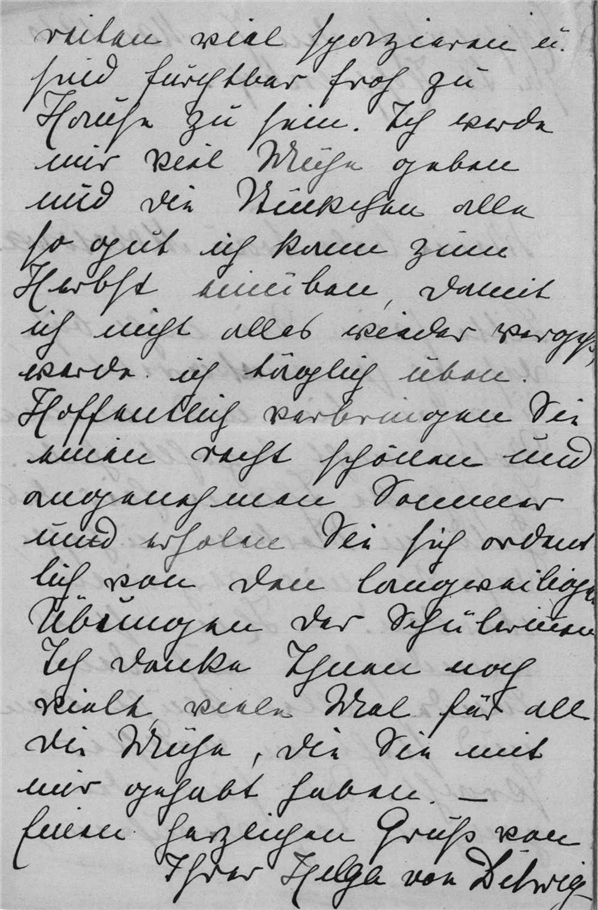 reiten viel spazieren u.
sind furchtbar froh zu
Hause zu sein. Ich werde
mir viel Mühe geben
und die Stückchen alle
so gut ich kann zum
Herbst einüben, damit
ich nicht alles wieder vergess,
werde ich täglich üben.
Hoffentlich verbringen Sie
einen recht schönen und
angenehmen Sommer
und erholen Sie sich ordent
lich von den langweiligen
Übungen der Schülerinnen
Ich danke Ihnen noch
viele, viele Mal für all
die Mühe, die Sie mit
mir gehabt haben. —
Einen herzlichen Gruß von
Ihrer Helga von